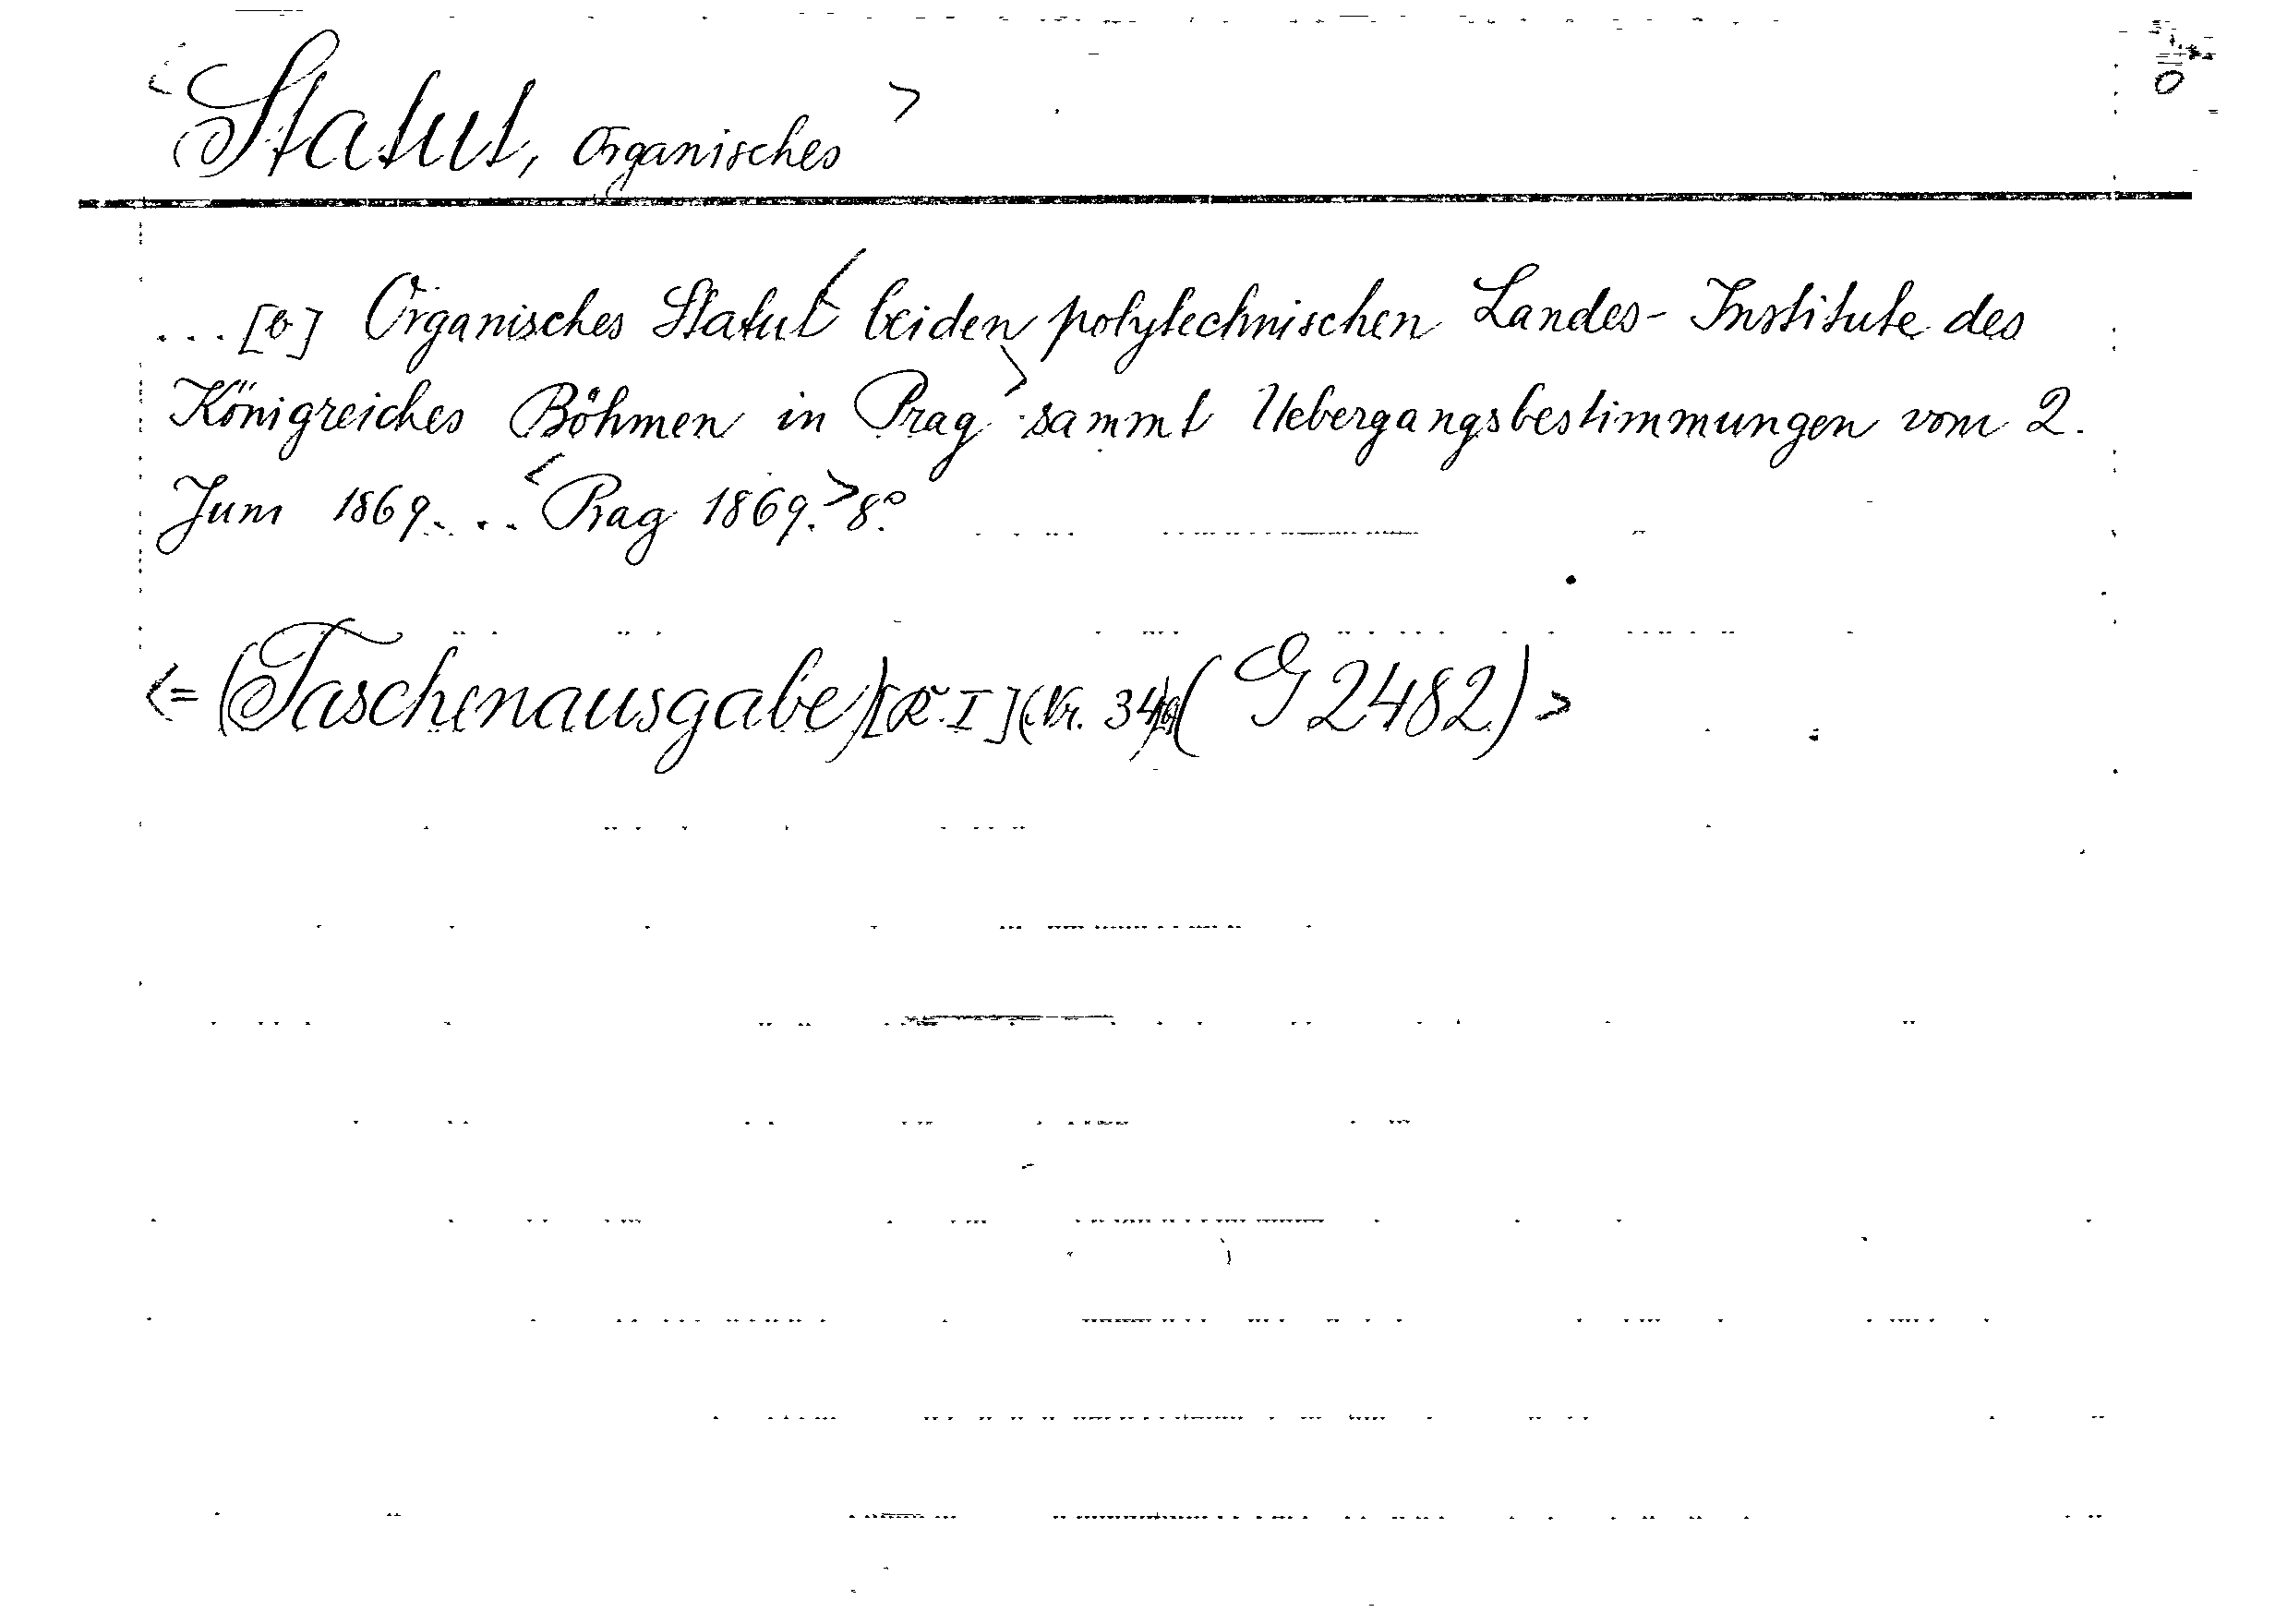 <Statut, Organisches>
...[b] Organisches Statut beiden polytechnischen Landes-Institute des
Königreiches Böhmen in Prag> sammt Uebergangsbestimmungen vom 2.
Juni 1869... <Prag 1869.> 8º.
<= (Taschenausgabe) [R. I] (Nr. 34) (G 2482)>